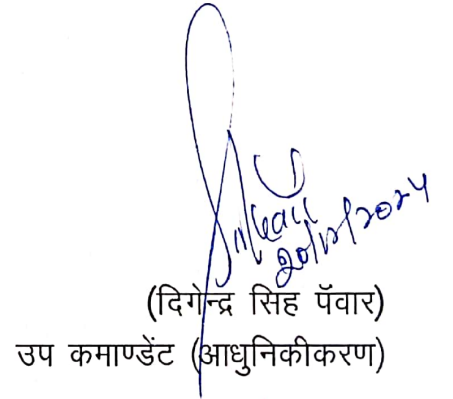 20/12/2024
(दिगेन्द्र सिंह पॅवार)
उप कमाण्डेंट (आधुनिकीकरण)